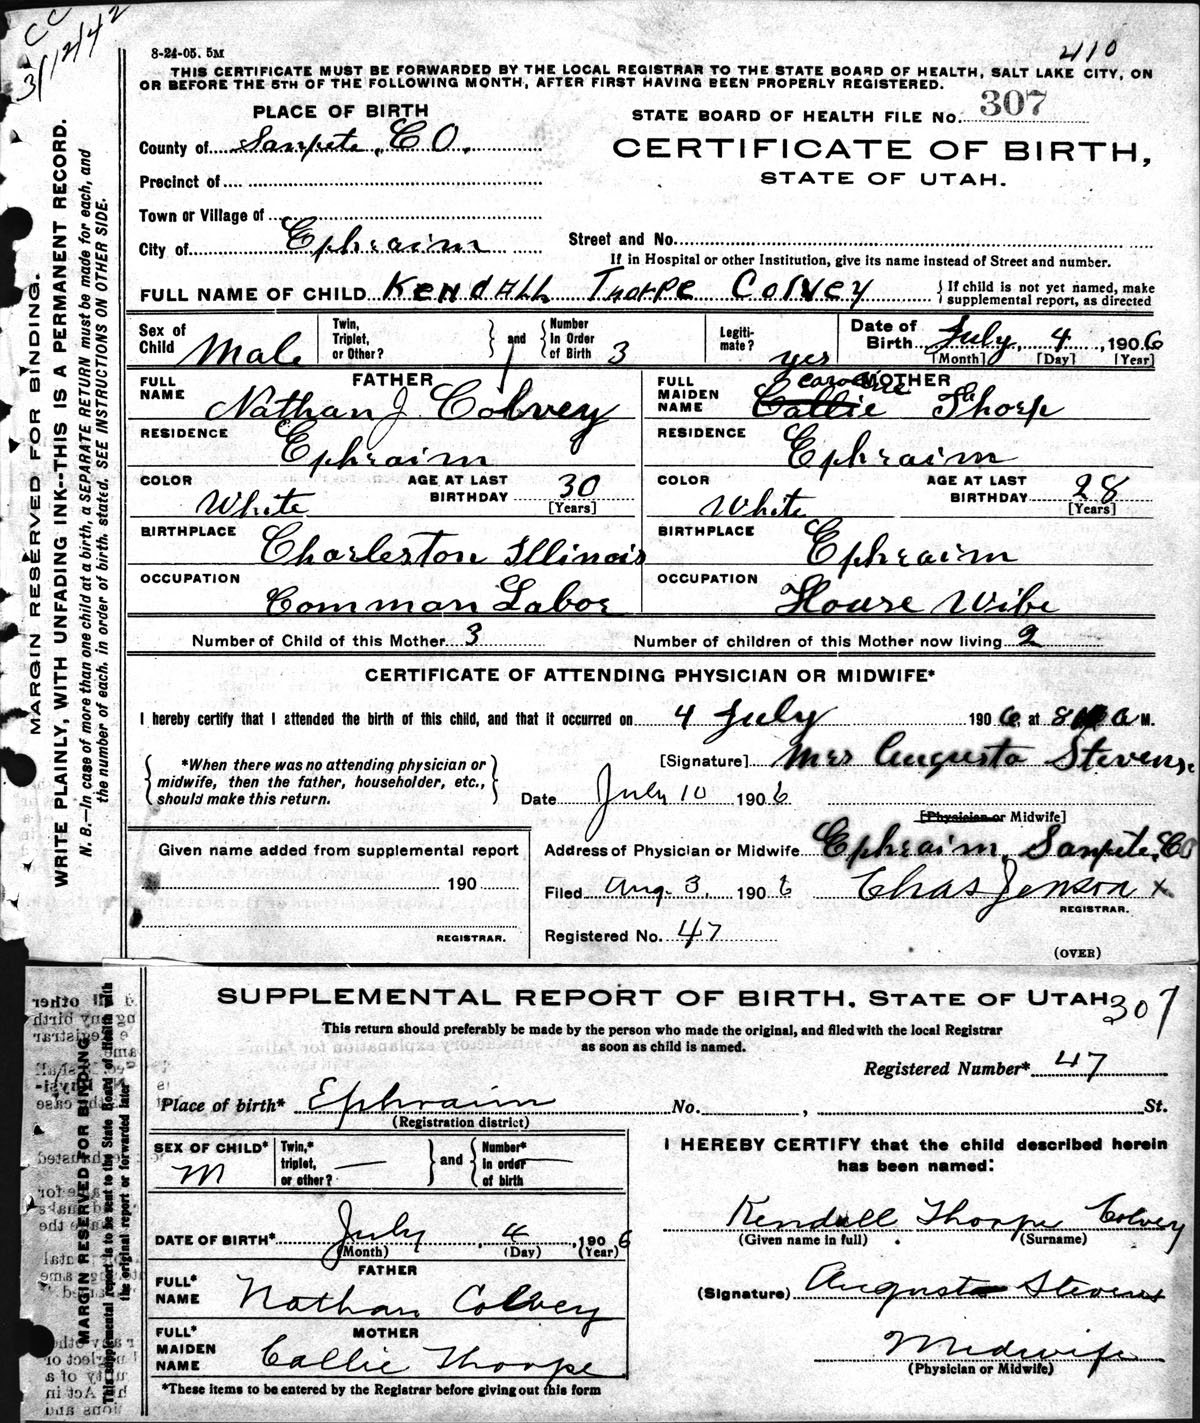 3/12/42
CC
8-24-05. 5M
410
THIS CERTIFICATE MUST BE FORWARDED BY THE LOCAL REGISTRAR TO THE STATE BOARD OF HEALTH, SALT LAKE CITY, ON
OR BEFORE THE 5TH OF THE FOLLOWING MONTH, AFTER FIRST HAVING BEEN PROPERLY REGISTERED.
PLACE OF BIRTH
STATE BOARD OF HEALTH FILE No. 307
County of Sanpete, CO.
CERTIFICATE OF BIRTH,
STATE OF UTAH.
Precinct of
Town or Village of
City of Ephraim
Street and No.
If in Hospital or other Institution, give its name instead of Street and number.
FULL NAME OF CHILD Kendall Thorpe Colvey
If child is not yet named, make
supplemental report, as directed
Sex of Child Male
Twin, Triplet, or Other?
and
Number In Order of Birth 3
Legiti-mate? yes
Date of Birth July 4, 1906
[Month] [Day] [Year]
FATHER
FULL NAME Nathan J Colvey
MOTHER
FULL MAIDEN NAME Callie Caroline Thorp
RESIDENCE Ephraim
RESIDENCE Ephraim
COLOR White
AGE AT LAST BIRTHDAY 30
[Years]
COLOR White
AGE AT LAST BIRTHDAY 28
[Years]
BIRTHPLACE Charleston Illinois
BIRTHPLACE Ephraim
OCCUPATION Common Labor
OCCUPATION House Wife
Number of Child of this Mother 3
Number of children of this Mother now living 2
CERTIFICATE OF ATTENDING PHYSICIAN OR MIDWIFE*
I hereby certify that I attended the birth of this child, and that it occurred on 4 July 1906, at 8 a M.
*When there was no attending physician or
midwife, then the father, householder, etc.,
should make this return.
[Signature] Mrs Augusta Stevens.
Date July 10 1906
[Physician or Midwife]
Given name added from supplemental report
190
REGISTRAR.
Address of Physician or Midwife Ephraim, Sanpete, CO
Filed Aug. 3, 1906
Chas Jenson x
REGISTRAR.
Registered No. 47
(OVER)
MARGIN RESERVED FOR BINDING.
WRITE PLAINLY, WITH UNFADING INK--THIS IS A PERMANENT RECORD.
N. B.—In case of more than one child at a birth, a SEPARATE RETURN must be made for each, and
the number of each, in order of birth, stated. SEE INSTRUCTIONS ON OTHER SIDE.
SUPPLEMENTAL REPORT OF BIRTH, STATE OF UTAH
307
This return should preferably be made by the person who made the original, and filed with the local Registrar
as soon as child is named.
Registered Number* 47
Place of birth* Ephraim No. , St.
(Registration district)
SEX OF CHILD* M
Twin,* triplet, or other?
and
Number* in order of birth
I HEREBY CERTIFY that the child described herein
has been named:
DATE OF BIRTH* July, 4, 1906
(Month) (Day) (Year)
Kendall Thorpe Colvey
(Given name in full) (Surname)
FATHER
FULL* NAME Nathan Colvey
(Signature) Augusta Stevens
MOTHER
FULL* MAIDEN NAME Callie Thorpe
Midwife
(Physician or Midwife)
*These items to be entered by the Registrar before giving out this form
MARGIN RESERVED FOR BINDING.
This supplemental report is to be sent to the State Board of Health with
the original report or forwarded later